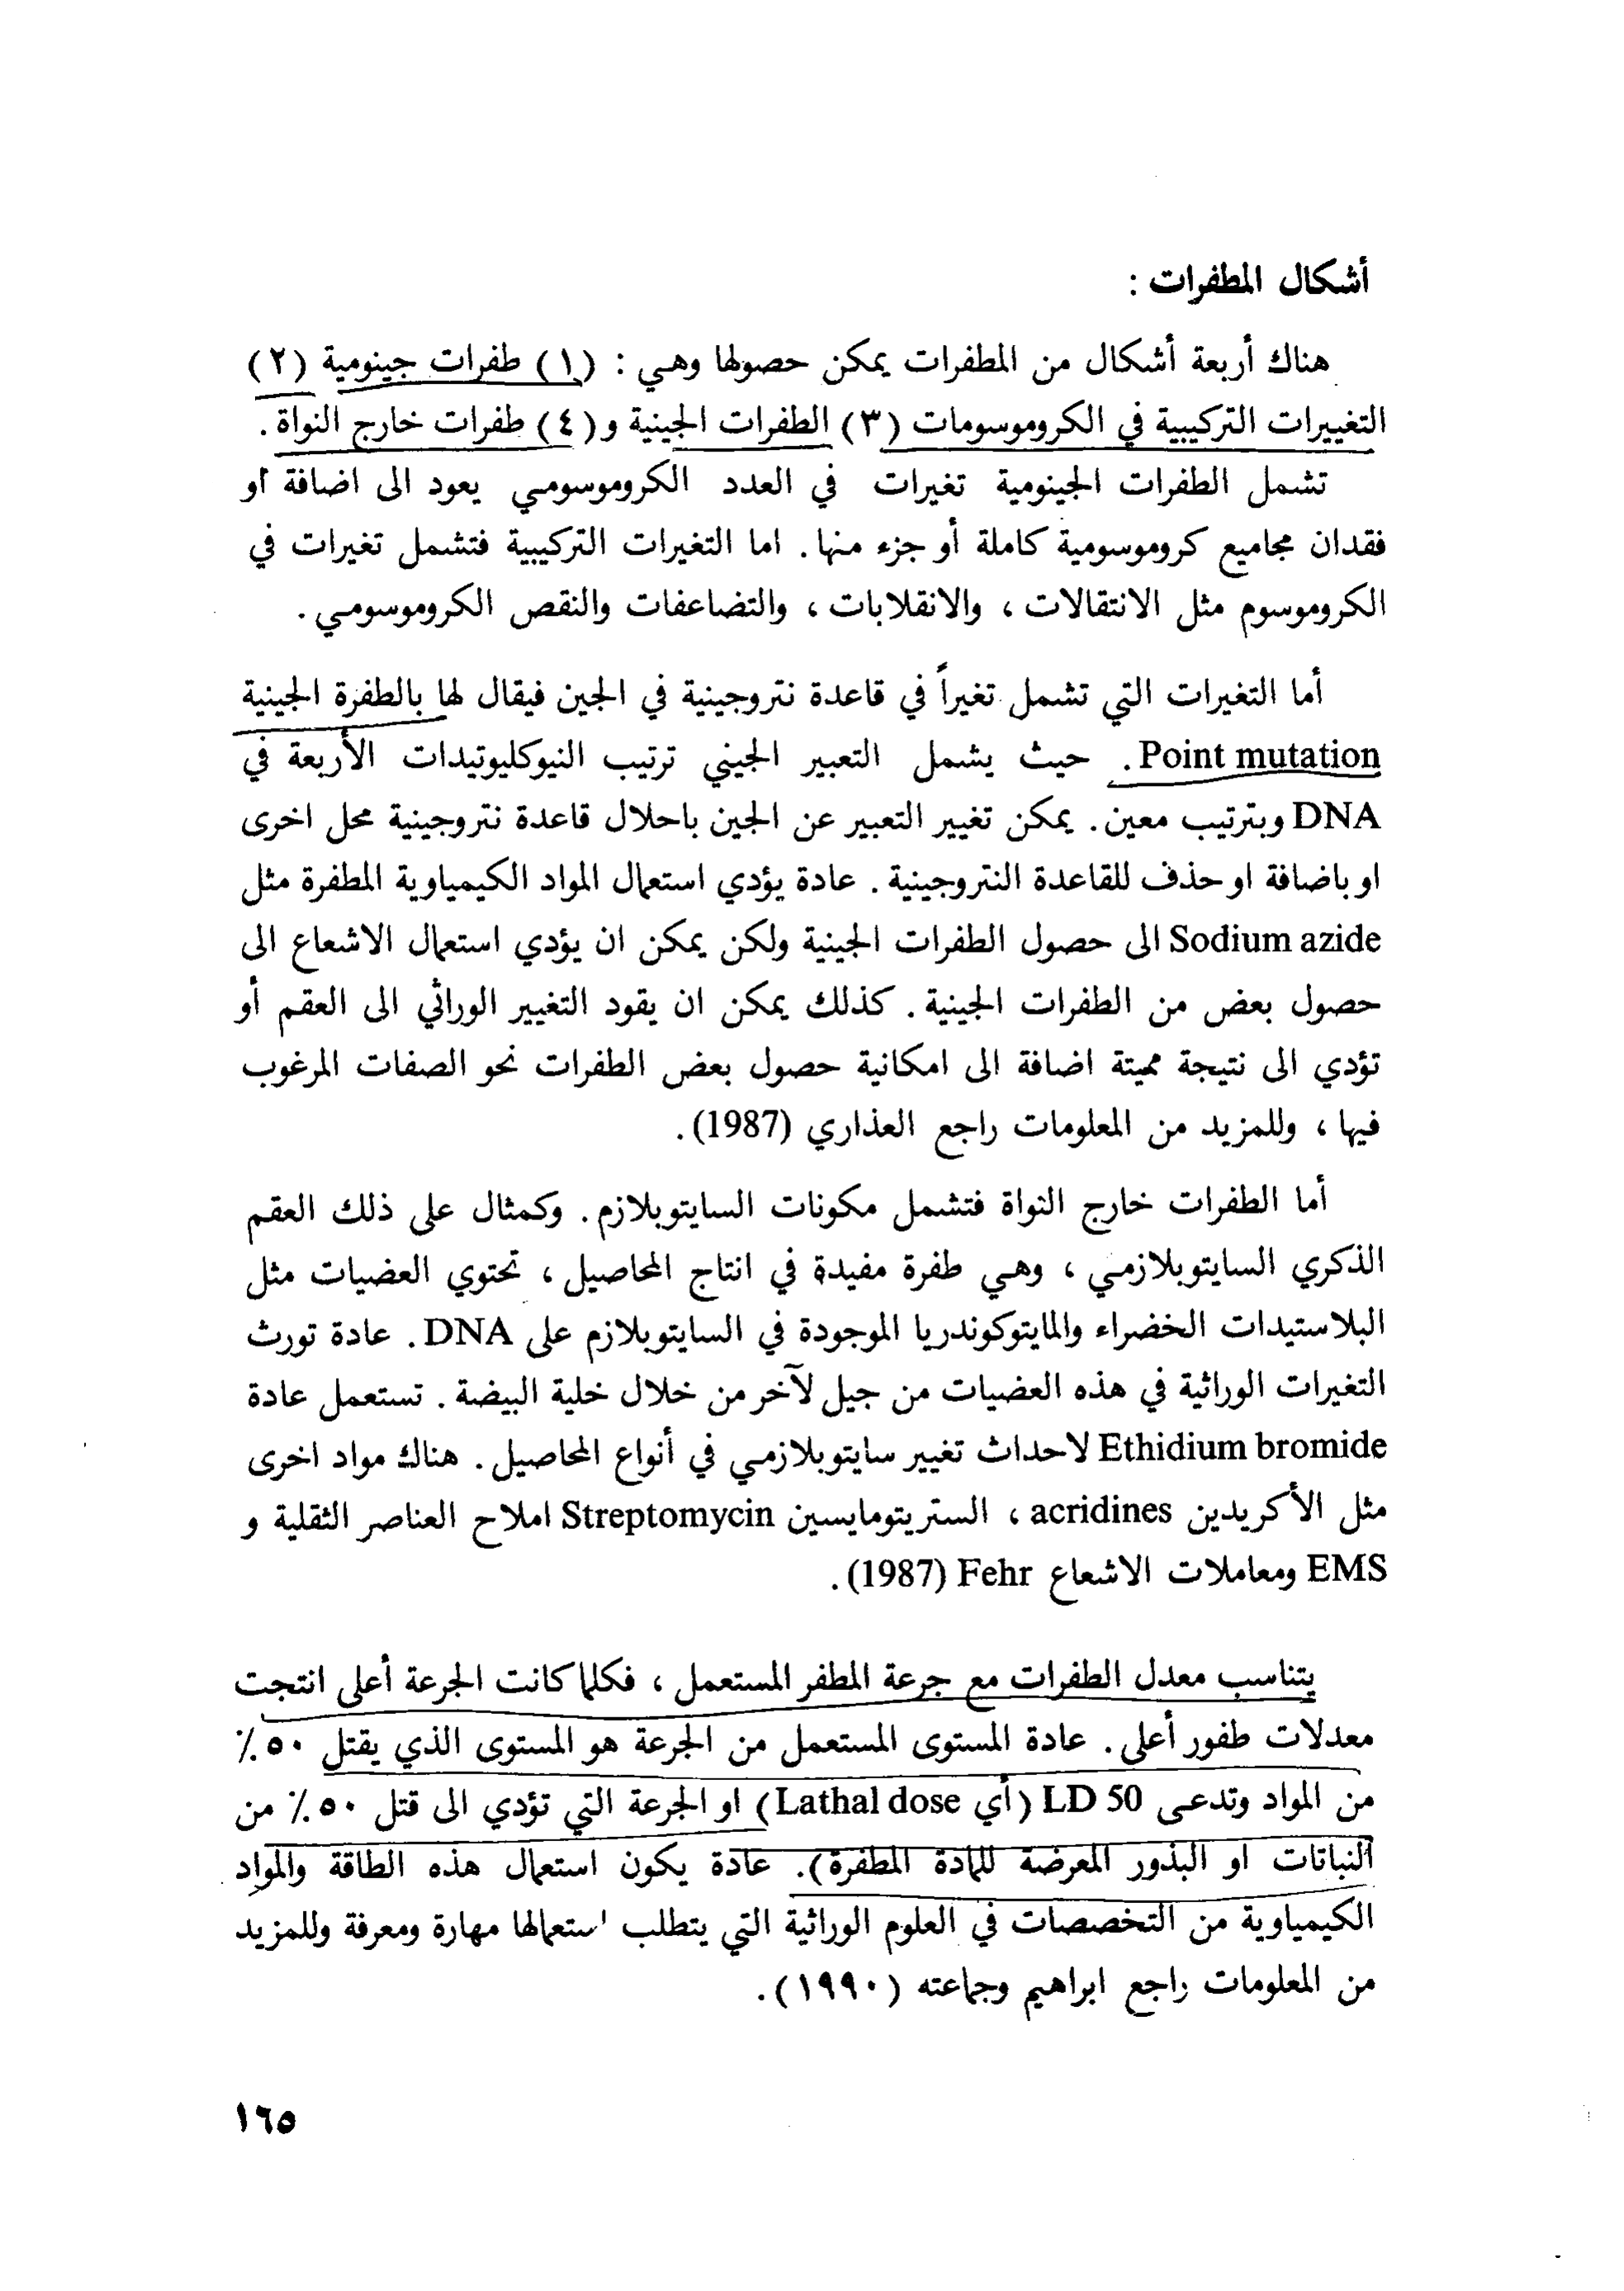 أشكال المطفرات :
هناك أربعة أشكال من المطفرات يمكن حصولها وهي : (١) طفرات جينومية (٢)
التغييرات التركيبية في الكروموسومات (٣) الطفرات الجينية و(٤) طفرات خارج النواة .
تشمل الطفرات الجينومية تغيرات في العدد الكروموسومي يعود الى اضافة أو
فقدان مجاميع كروموسومية كاملة أو جزء منها . اما التغيرات التركيبية فتشمل تغيرات في
الكروموسوم مثل الانتقالات ، والانقلابات ، والتضاعفات والنقص الكروموسومي .
أما التغيرات التي تشمل تغيراً في قاعدة نتروجينية في الجين فيقال لها بالطفرة الجينية
Point mutation . حيث يشمل التعبير الجيني ترتيب النيوكليوتيدات الأربعة في
DNA وبترتيب معين . يمكن تغيير التعبير عن الجين باحلال قاعدة نتروجينية محل اخرى
او باضافة او حذف للقاعدة النتروجينية . عادة يؤدي استعمال المواد الكيمياوية المطفرة مثل
Sodium azide الى حصول الطفرات الجينية ولكن يمكن ان يؤدي استعمال الاشعاع الى
حصول بعض من الطفرات الجينية . كذلك يمكن ان يقود التغيير الوراثي الى العقم أو
تؤدي الى نتيجة مميتة اضافة الى امكانية حصول بعض الطفرات نحو الصفات المرغوب
فيها ، وللمزيد من المعلومات راجع العذاري (1987) .
أما الطفرات خارج النواة فتشمل مكونات السايتوبلازم . وكمثال على ذلك العقم
الذكري السايتوبلازمي ، وهي طفرة مفيدة في انتاج المحاصيل ، تحتوي العضيات مثل
البلاستيدات الخضراء والمايتوكوندريا الموجودة في السايتوبلازم على DNA . عادة تورث
التغيرات الوراثية في هذه العضيات من جيل لآخر من خلال خلية البيضة . تستعمل عادة
Ethidium bromide لاحداث تغيير سايتوبلازمي في أنواع المحاصيل . هناك مواد اخرى
مثل الأكريدين acridines ، الستريتومايسين Streptomycin املاح العناصر الثقلية و
EMS ومعاملات الاشعاع Fehr (1987) .
يتناسب معدل الطفرات مع جرعة المطفر المستعمل ، فكلما كانت الجرعة أعلى انتجت
معدلات طفور أعلى . عادة المستوى المستعمل من الجرعة هو المستوى الذي يقتل ٥٠٪
من المواد وتدعى LD 50 (أي Lathal dose) او الجرعة التي تؤدي الى قتل ٥٠٪ من
النباتات او البذور المعرضة للمادة المطفرة) . عادة يكون استعمال هذه الطاقة والمواد
الكيمياوية من التخصصات في العلوم الوراثية التي يتطلب استعمالها مهارة ومعرفة وللمزيد
من المعلومات راجع ابراهيم وجماعته (١٩٩٠) .
١٦٥